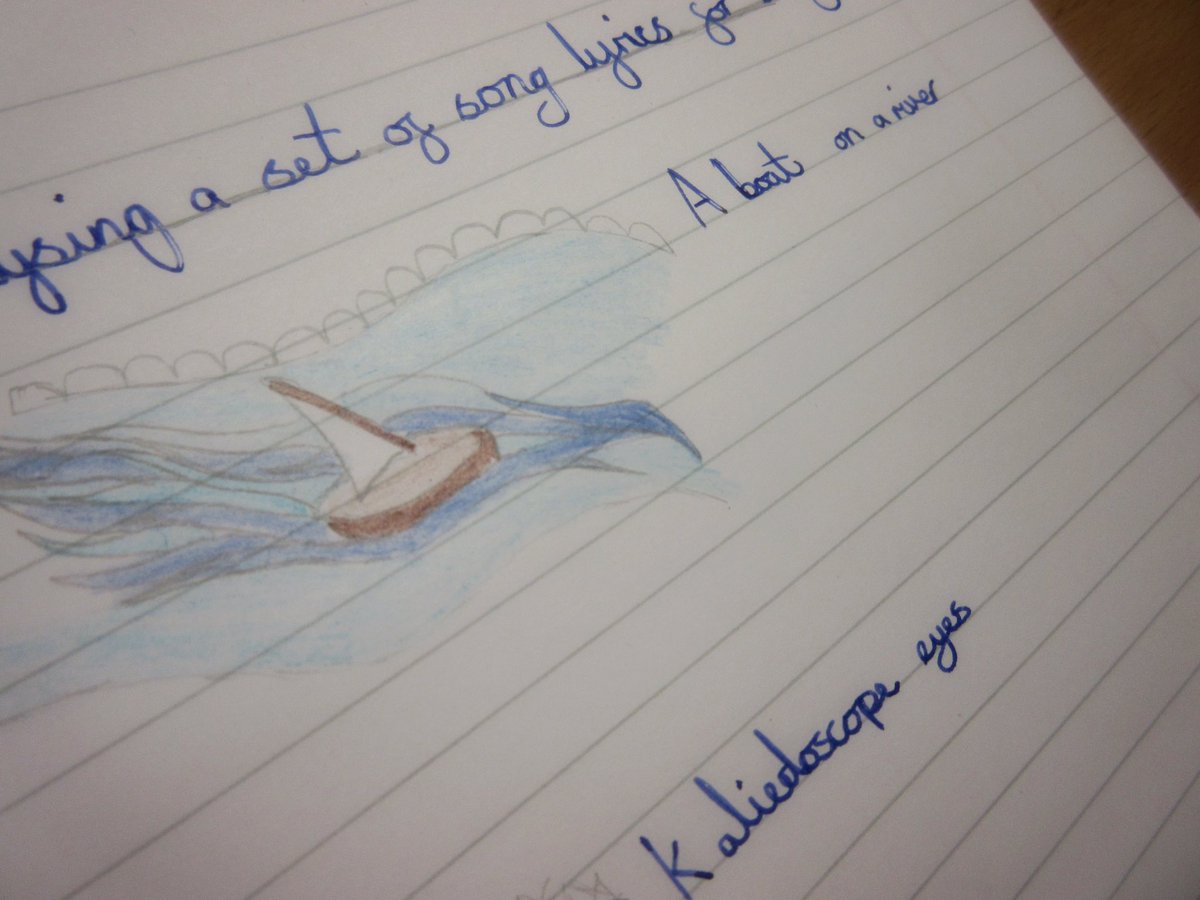 ysing a set of song lyrics for
A boat on a river
Kaliedoscope eyes